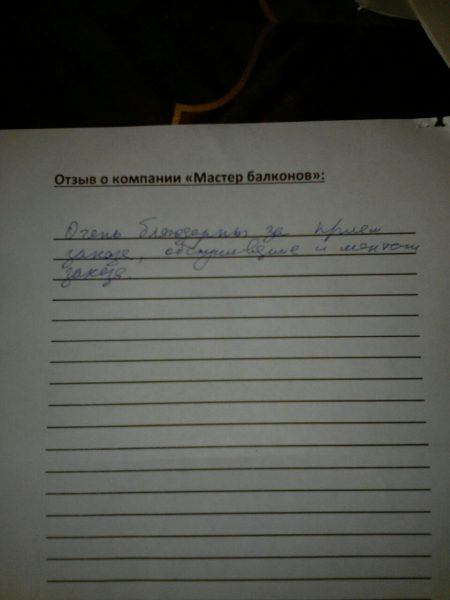 Отзыв о компании «Мастер балконов»:
Очень благодарны за прием
заказа, обслуживание и монтаж
заказа.